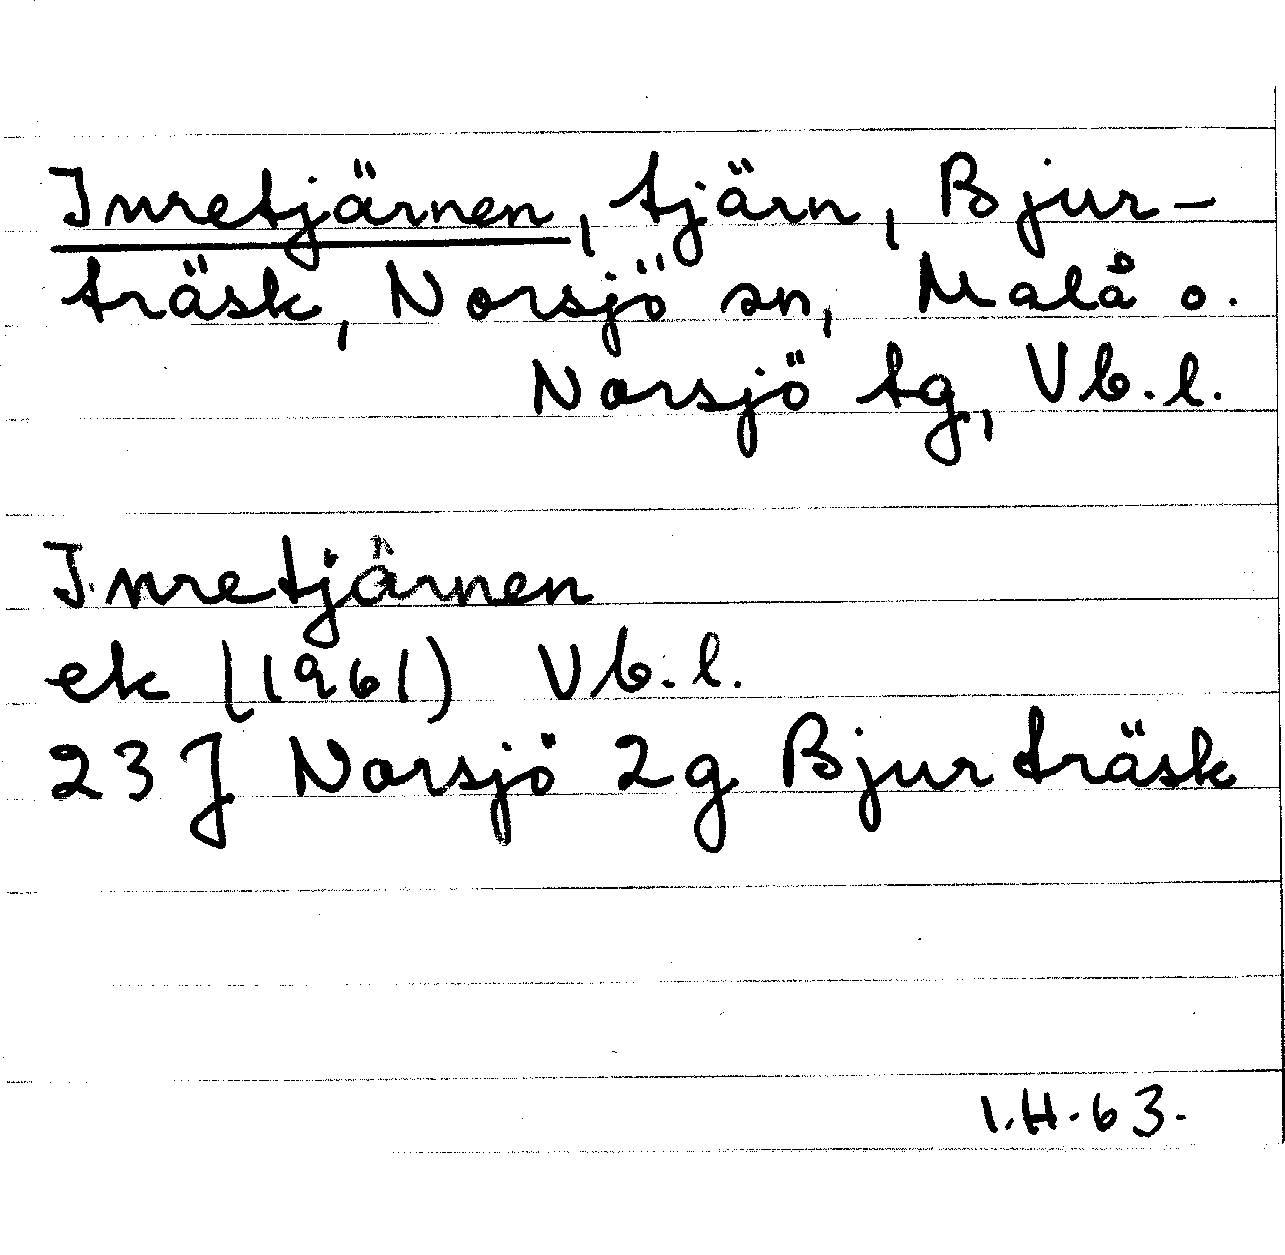 Inretjärnen, tjärn, Bjur-
träsk, Norsjö sn, Malå o.
Norsjö tg, Vb.l.
Inretjärnen
ek (1961) Vb.l.
23 J Norsjö 2g Bjurträsk
I.H.63.